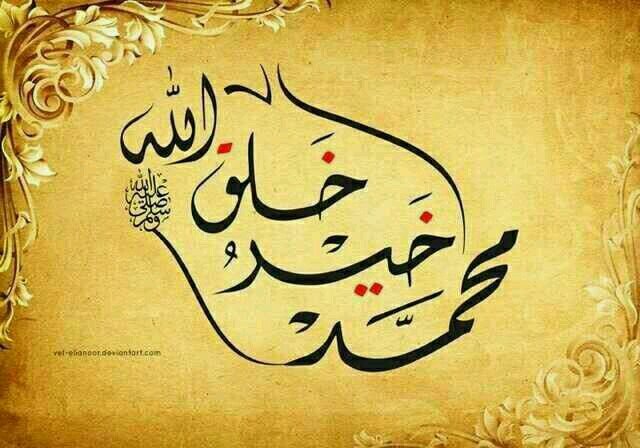 محمد
خير
خلق
الله
صلى الله عليه وسلم
vel-elianoor.deviantart.com